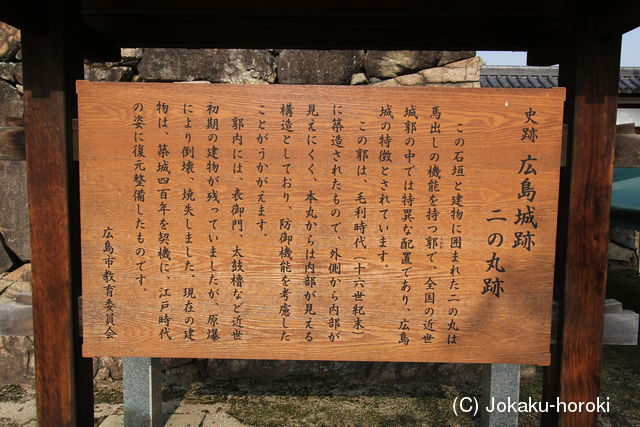 史跡 広島城跡
二の丸跡
この石垣と建物に囲まれた二の丸は
馬出しの機能を持つ郭で、全国の近世
城郭の中では特異な配置であり、広島
城の特徴とされています。
この郭は、毛利時代（十六世紀末）
に築造されたもので、外側から内部が
見えにくく、本丸からは内部が見える
構造としており、防御機能を考慮した
ことがうかがえます。
郭内には、表御門、太鼓櫓など近世
初期の建物が残っていましたが、原爆
により倒壊、焼失しました。現在の建
物は、築城四百年を契機に、江戸時代
の姿に復元整備したものです。
広島市教育委員会
(C) Jokaku-horoki